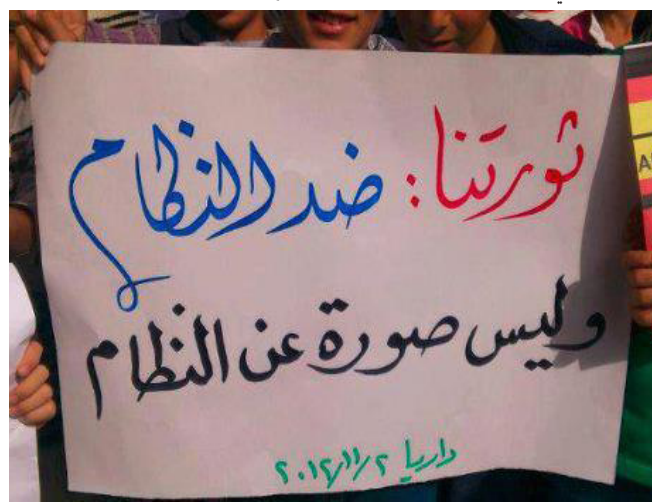 ثورتنا: ضد النظام
وليس صورة عن النظام
داريا ٢٠١٢/١١/٢